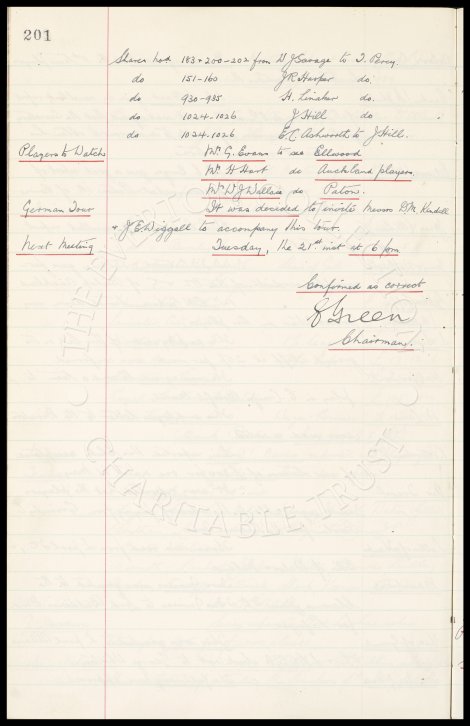 201
Shares No's 183 + 200-202 from W J Savage to T. Percy
do 151-160 J R Harper do.
do 930-935 H. Linaker do.
do 1024-1026 J Hill do
do 1024-1026 E C. Ashworth to J Hill.
Players to Watch Mr G. Evans to see Ellwood
Mr. H Hart do Auckland players.
Mr W J do Paton.
German Tour It was decided to invite Messrs D, M. Kendall
+ J. E Diggell to accompany this tour.
Next Meeting Tuesday, the 21st inst at 6 pm
Confirmed as correct
Green
Chairman.
THE
CHARITABLE TRUST